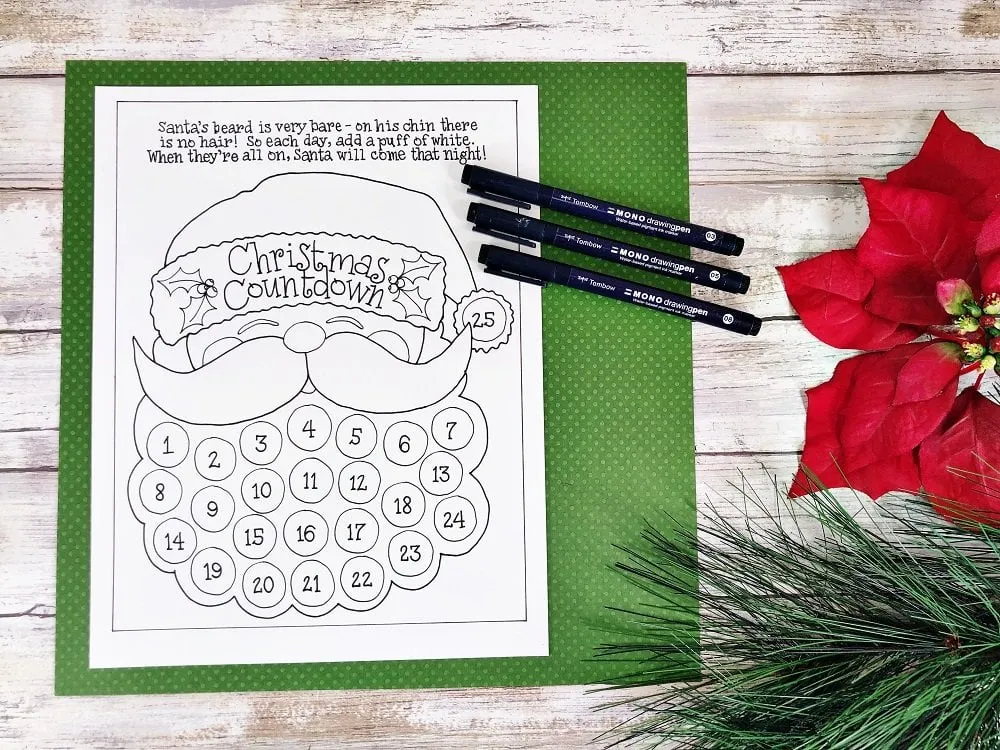 Santa's beard is very bare - on his chin there
is no hair! So each day, add a puff of white.
When they're all on, Santa will come that night!
Christmas
Countdown
25
1 2 3 4 5 6 7
8 9 10 11 12 13
14 15 16 17 18 24
19 20 21 22 23
Tombow MONO drawingpen 03
Water-based pigment ink marker
Tombow MONO drawingpen 05
Water-based pigment ink marker
Tombow MONO drawingpen 06
Water-based pigment ink marker